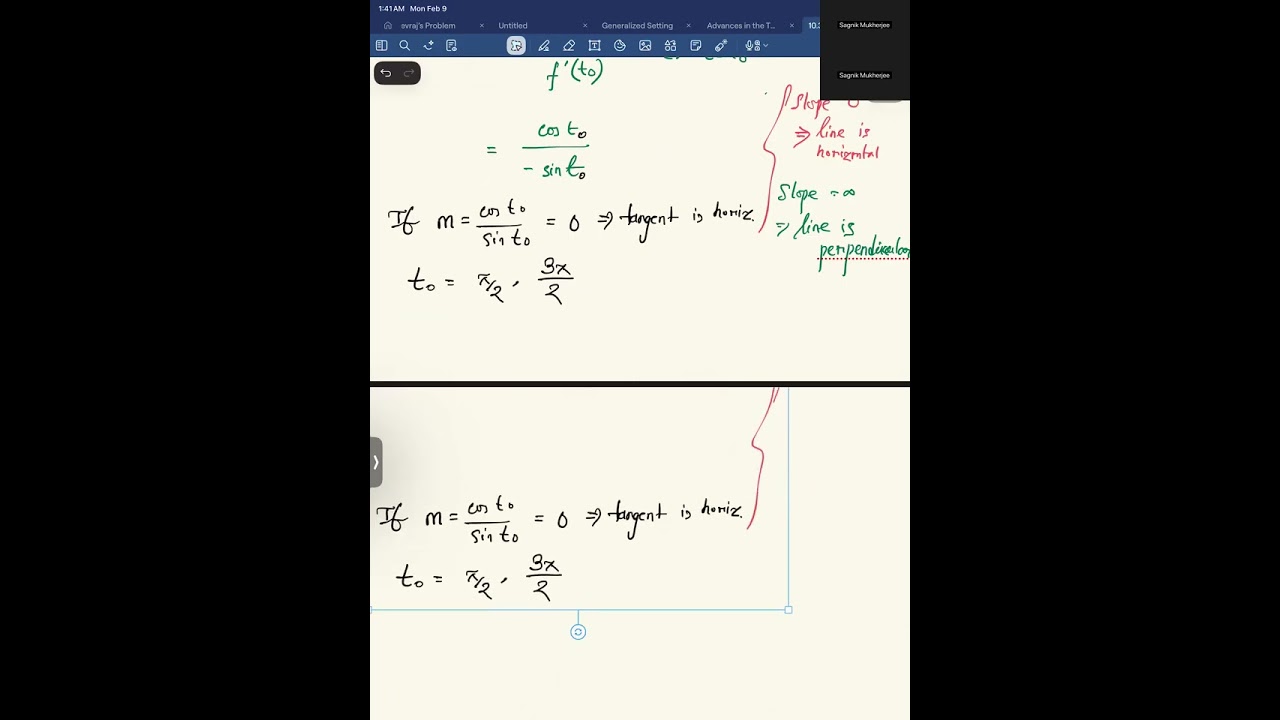 1:41 AM Mon Feb 9
avraj's Problem
Untitled
Generalized Setting
Advances in the T...
Sagnik Mukherjee
Sagnik Mukherjee
f'(t₀)
= cos t₀ / - sin t₀
Slope 0
⇒ line is
horizontal
Slope = ∞
⇒ line is
perpendicular
If m = cos t₀ / sin t₀ = 0 ⇒ tangent is horiz.
t₀ = π/2 , 3π/2
If m = cos t₀ / sin t₀ = 0 ⇒ tangent is horiz.
t₀ = π/2 , 3π/2